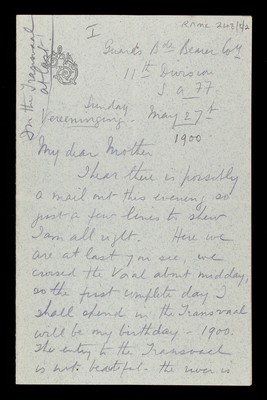 I
RAMC 248/2/2
In the Transvaal
at last!
Guards Bde Bearer Coy
11th Division
S.A.F.F.
Sunday
Vereeninging. May 27th
1900
My dear Mother
I hear there is possibly
a mail out this evening so
just a few lines to shew
I am all right. Here we
are at last you see, we
crossed the Vaal about midday,
so the first complete day I
shall spend in the Transvaal
will be my birthday - 1900.
The entry to the Transvaal
is not beautiful - the river is